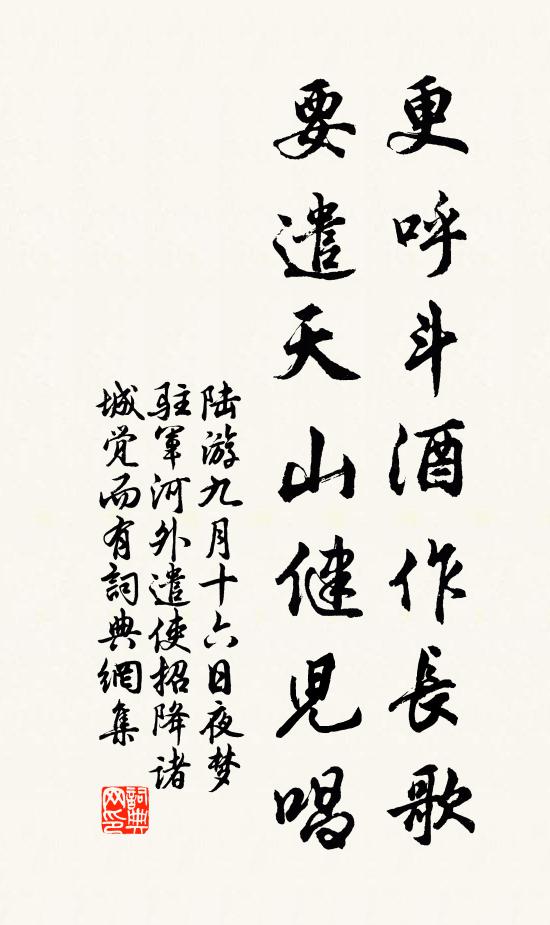 更呼斗酒作長歌
要遣天山健児唱
陆游九月十六日夜梦
駐軍河外遣使招降诸
城覚而有詞典網集
詞典
网印